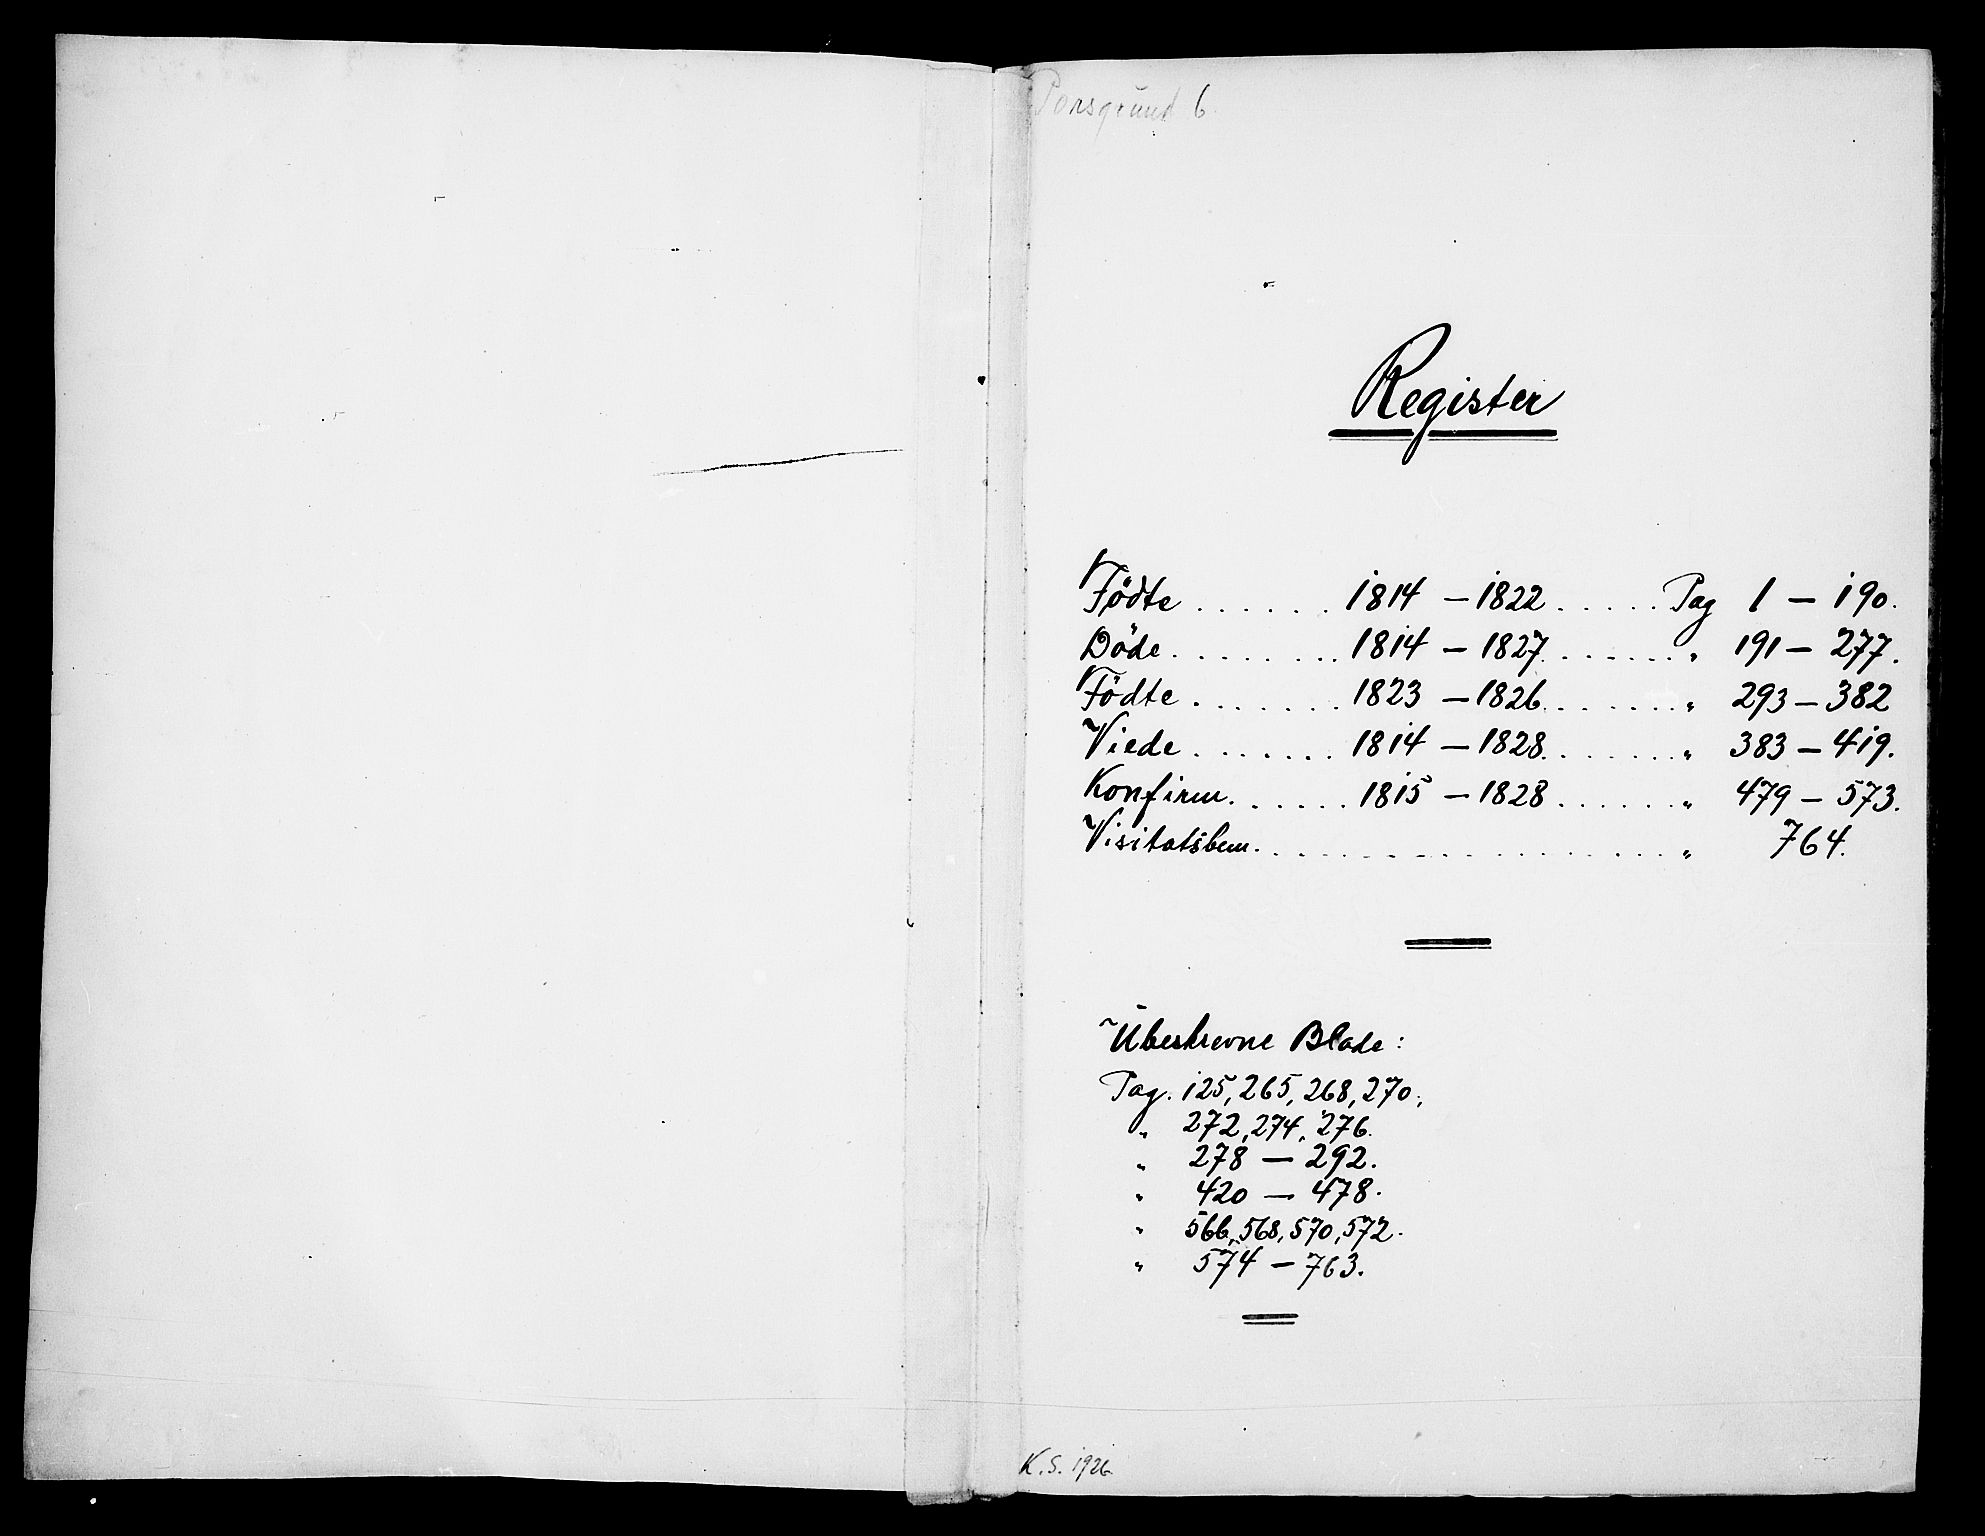 Porsgrund 6.
Register
Födte . . . . . . 1814 – 1822 . . . . . Pag 1 – 190.
Döde . . . . . . . . 1814 – 1827 . . . . . . „ 191 – 277.
Födte . . . . . . . 1823 – 1826 . . . . . . . „ 293 – 382
Viede . . . . . . . 1814 – 1828 . . . . . . . „ 383 – 419.
Konfirm. . . . . . . 1815 – 1828 . . . . . . „ 479 – 573.
Visitatsbem. . . . . . . . . . . . . . . . . . „ 764.
Ubeskrevne Blade:
Pag. 125, 265, 268, 270,
„ 272, 274, 276.
„ 278 – 292.
„ 420 – 478.
„ 566, 568, 570, 572.
„ 574 – 763.
K.S. 1926.